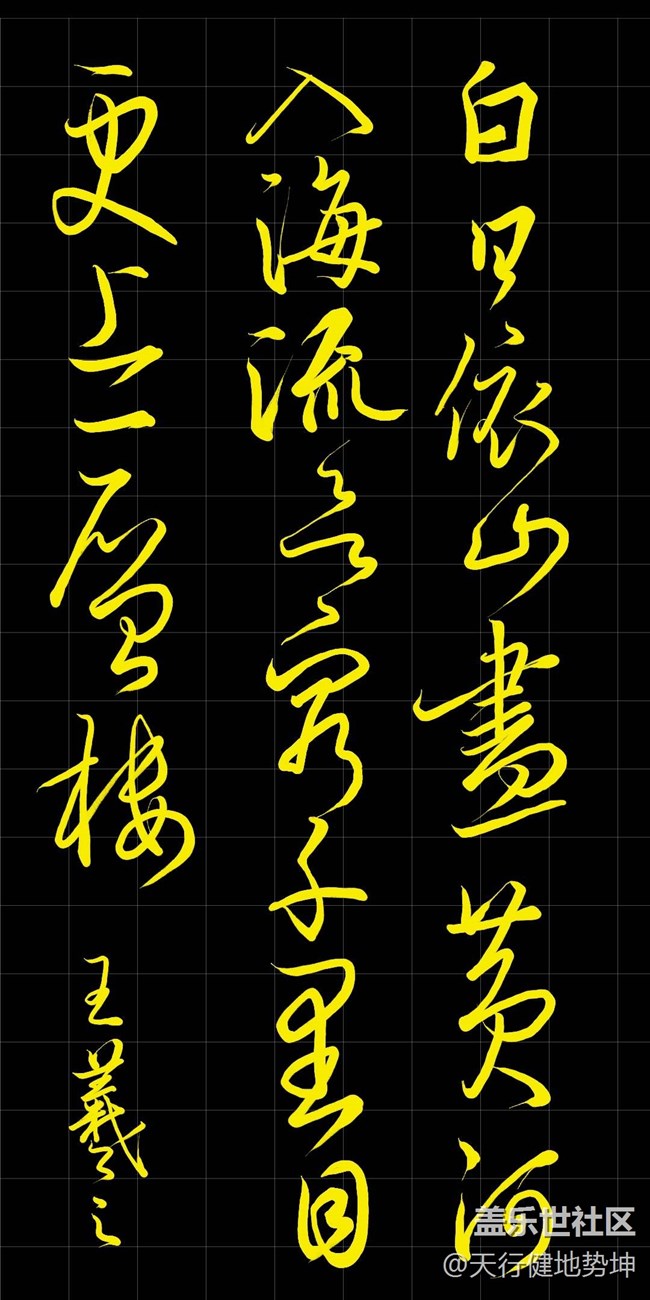 白日依山盡黄河
入海流欲窮千里目
更上一層樓
王羲之
盖乐世社区
@天行健地势坤